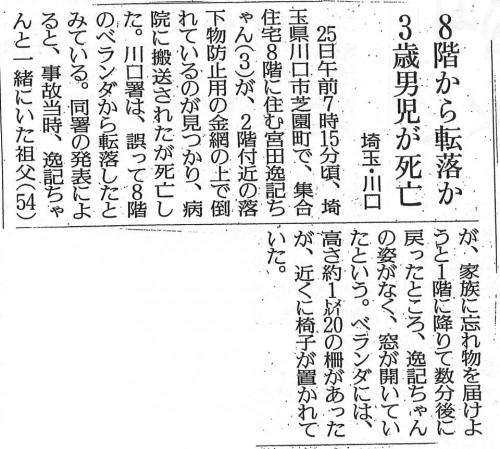 8階から転落か
3歳男児が死亡
埼玉・川口
25日午前7時15分頃、埼
玉県川口市芝園町で、集合
住宅8階に住む宮田逸記ち
ゃん(3)が、2階付近の落
下物防止用の金網の上で倒
れているのが見つかり、病
院に搬送されたが死亡し
た。川口署は、誤って8階
のベランダから転落したと
みている。同署の発表によ
ると、事故当時、逸記ちゃ
んと一緒にいた祖父(54)
が、家族に忘れ物を届けよ
うと1階に降りて数分後に
戻ったところ、逸記ちゃん
の姿がなく、窓が開いてい
たという。ベランダには、
高さ約1㍍20の柵があった
が、近くに椅子が置かれて
いた。